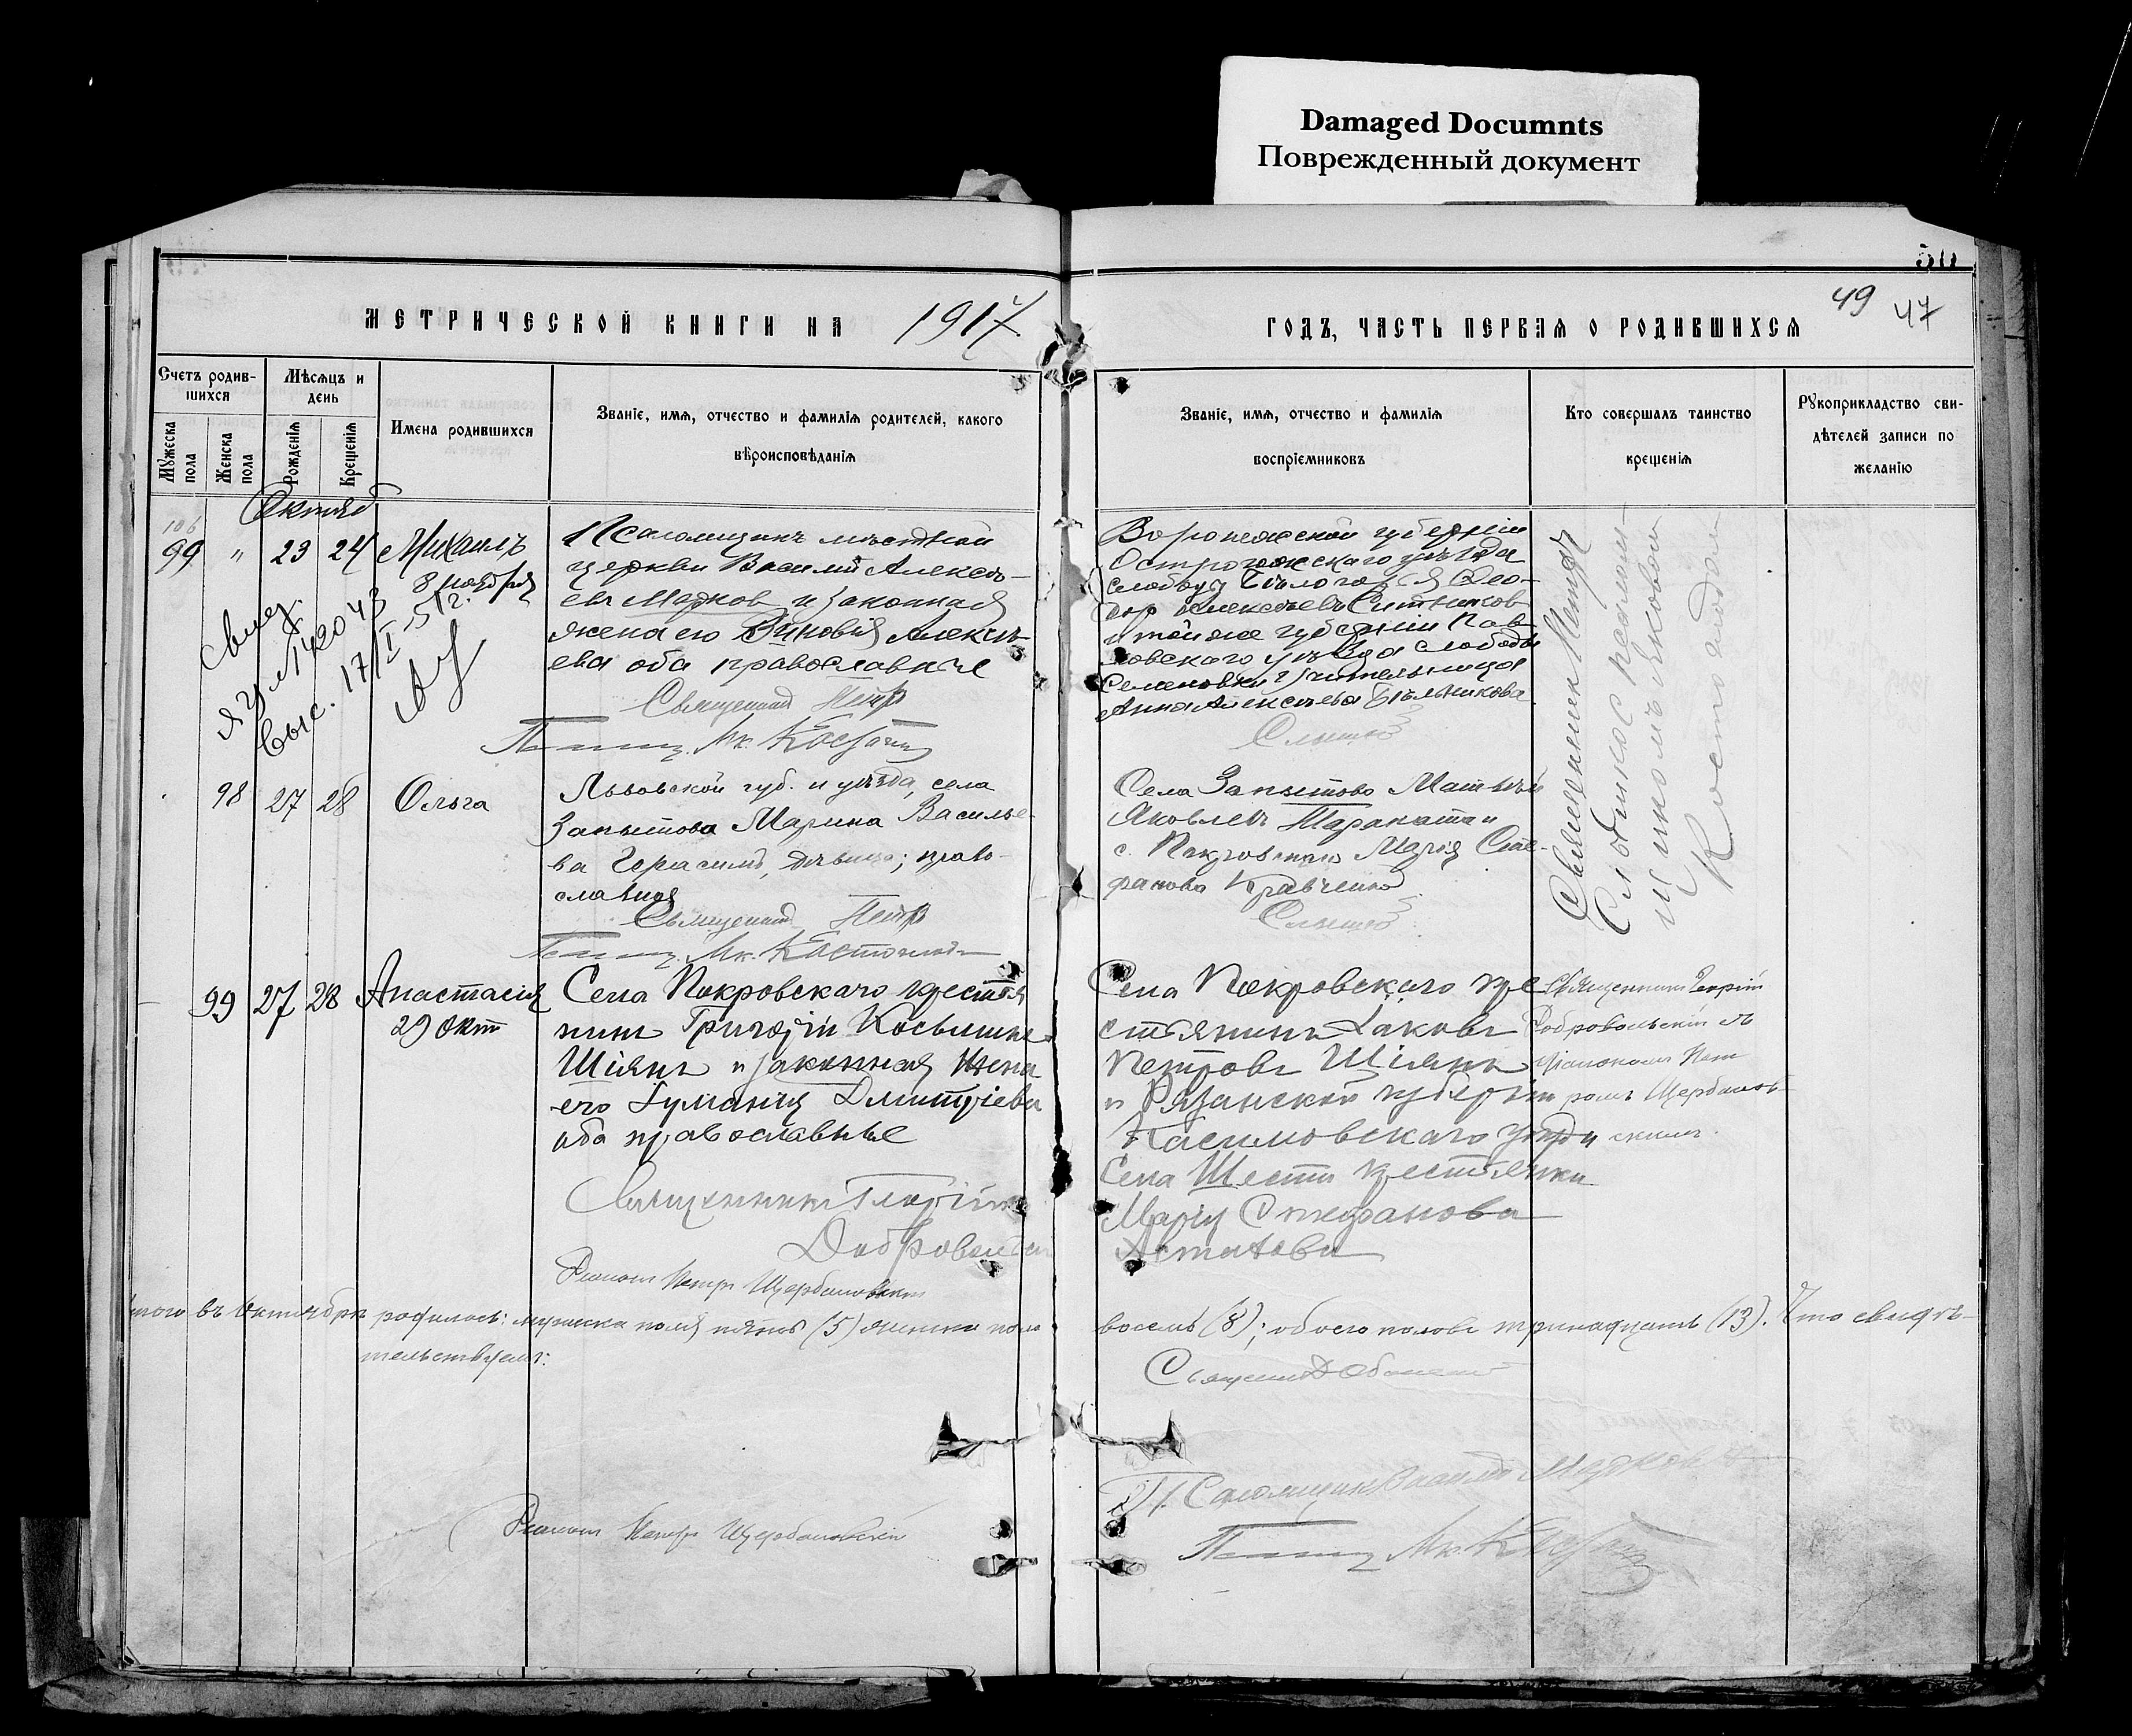 Damaged Documnts
Поврежденный документ
50
49 47
МЕТРИЧЕСКОЙ КНИГИ НА 1917
ГОДЪ, ЧАСТЬ ПЕРВАЯ О РОДИВШИХСЯ
Счетъ родив-
шихся
Мѣсяцъ и
день
Мужеска
пола
Женска
пола
Рожденія
Крещенія
Имена родившихся
Званіе, имя, отчество и фамилія родителей, какого
вѣроисповѣданія
Званіе, имя, отчество и фамилія
воспріемниковъ
Кто совершалъ таинство
крещенія
Рукоприкладство сви-
дѣтелей записи по
желанію
Октяб
106
99 " 23 24 Михаилъ
8 ноября
Псаломщикъ мѣстной
церкви Василій Алексѣ-
евъ Марков и законная
жена его Зиновія Алексѣ-
ева оба православные
Священник Петр
Мк.
Воронежской губерніи
Острогожскаго уѣзда
слободы Бѣлогорья Ѳео-
дор Алексѣевъ Ситников
и той же губерніи Пав-
ловскаго уѣзда слободы
Семеновки учительница
Анна Алексѣева Бѣльчикова
Священник Петр
98 27 28 Ольга
Львовской губ. и уѣзда, села
Запытова Марина Василье-
ва Герасимъ, дѣвица; право-
славная
Священник Петр
Мк.
Села Запытово Матвѣй
Яковлевъ Тараната и
с. Покровскаго Марія Сте-
фанова Кравченко
99 27 28 Анастасія
29 Окт
Села Покровскаго крестья
нинъ Григорій Косьминъ
Шіянъ и законная жена
его Іуліанія Дмитріева
оба православные
Священникъ Георгій
Добровольскій
Діаконъ Петръ Щербановскій
Села Покровскаго кре
стьянинъ Іаковъ
Петровъ Шіянъ
и Рязанской губерніи
Касимовскаго уѣзда
Села Шости крестьянка
Марія Стефанова
Астахова
Священникъ Георгій
Добровольскій съ
діакономъ Пет
ромъ Щербанов-
скимъ.
Итого въ Октябрѣ родилось: мужеска пола пять (5) женска пола
восемь (8); обоего половъ тринадцать (13). Что свидѣ-
тельствуемъ:
Псаломщик Василій Марковъ
Діаконъ Петръ Щербановскій
Мк.